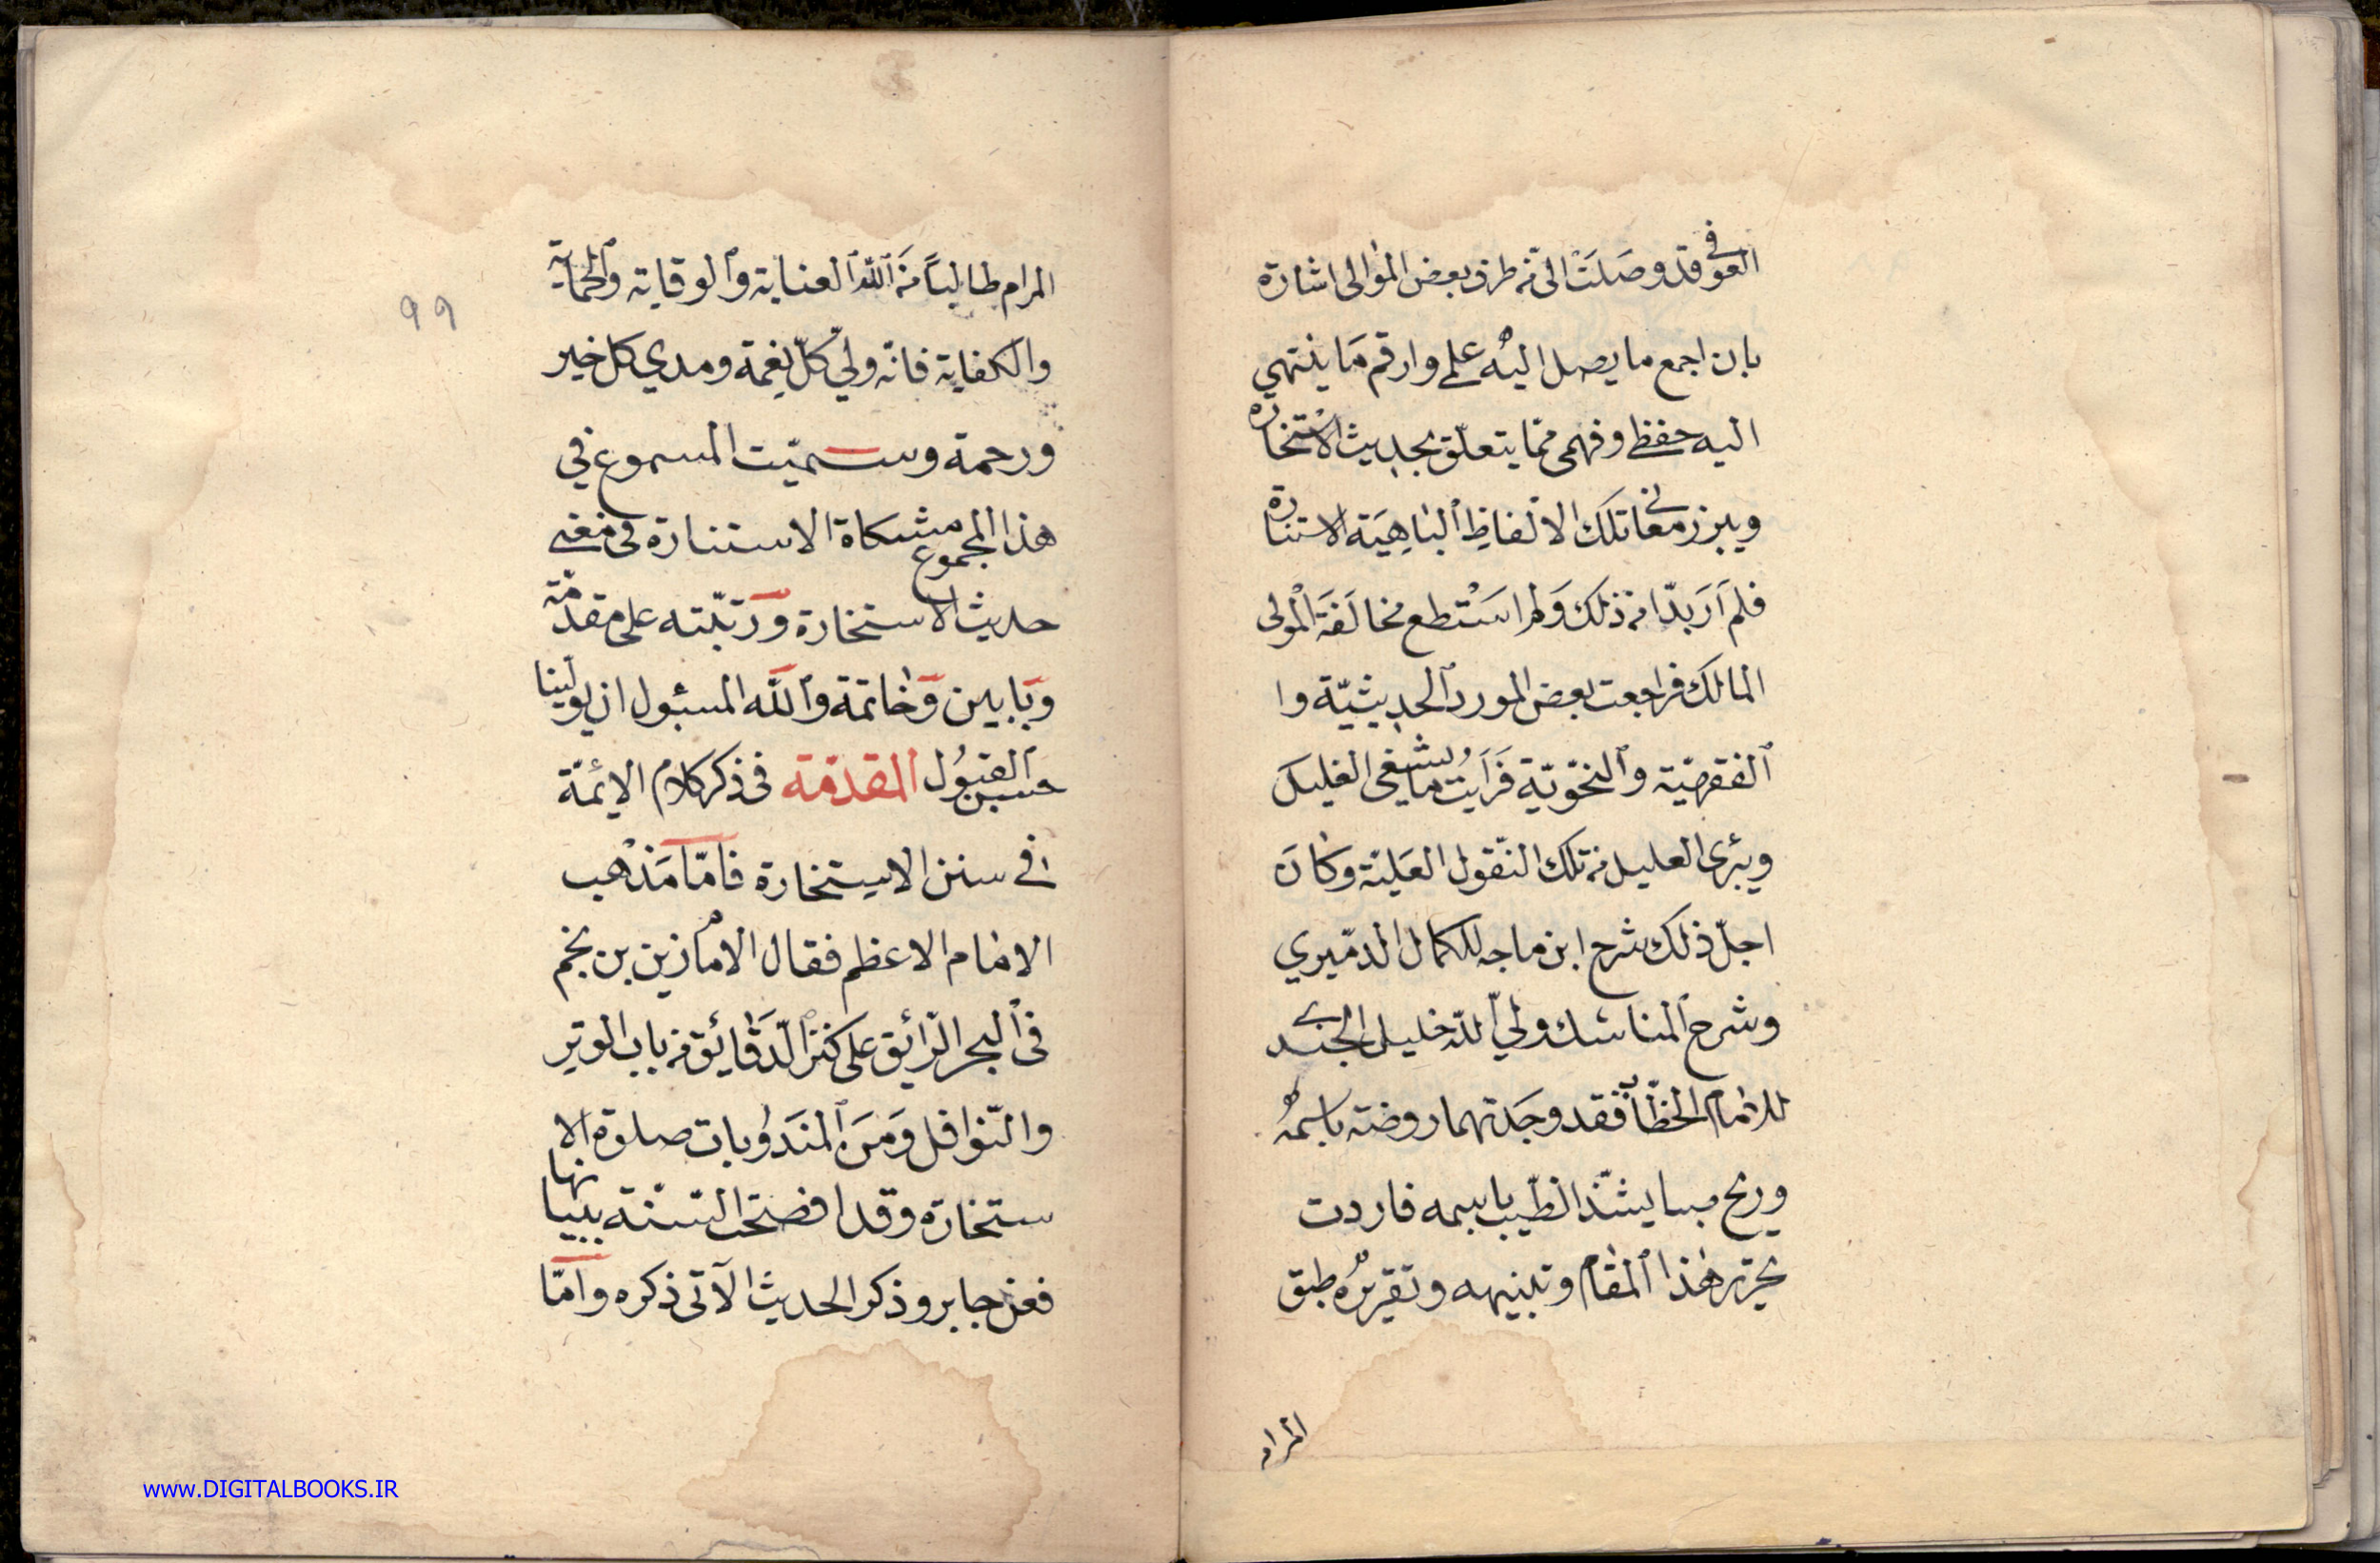 العوفى قد وصلَتْ الىّ من طرف بعض الموالى اشارة
بان اجمع ما يصل اليه علمى وارقم مَا ينتهي
اليه حفظى وفهمى ممّا يتعلّق بحديث الاستخارة
ويبرز معانى تلك الالفاظِ البَاهِيَة الاستنارة
فلم اَرَ بدّا من ذلك وَلم استطع مخالَفَة الْمولى
المالك فراجعت بعض المورد الحديثيّة وا
الفقهيّة والنحْويّة فَرَأيت ما يشفى الغليل
ويبرئ العليل من تلك النّقول العَليّة وكانَ
اجلّ ذلك شرح ابن ماجه للكمال الدمّيري
وشرح المناسك ولىّ الله خليل الجندى
للامام الحطّاب فقد وجَدتهما روضة باسمةً
وريح صبا يشذ الطّيب باسمه فاردت
تحرير هذا المقام وتبنيهه وتقريرُه طبق
المرام
المرام طالباً منَ الله العناية والوقاية والحماية
والكفاية فانّه ولىّ كلّ نِعْمة ومدي كل خير
ورحمة وسميّت المسموع في
هذا المجموع مشكاة الاستنارة فى معنى
حديث الاستخارة ورَتّبته على مقدّمة
وبَابين وَخاتمة والله المسئول ان يولينا
حسن القبُول المقدّمة فى ذكر كلام الائمّة
فى سنن الاستخارة فامّا مَذْهب
الامام الاعظم فقال الامام زين بن نجم
فى البحر الرّائِق على كنز الدّقَائِق من باب الوتر
والنّوافل وَمِنَ المنَدوُبات صلوة الا
ستخارة وقد افضحت السّنّة ببيانها
فعن جابر وذكر الحديث الآتى ذكره وأمّا
99
www.DIGITALBOOKS.IR